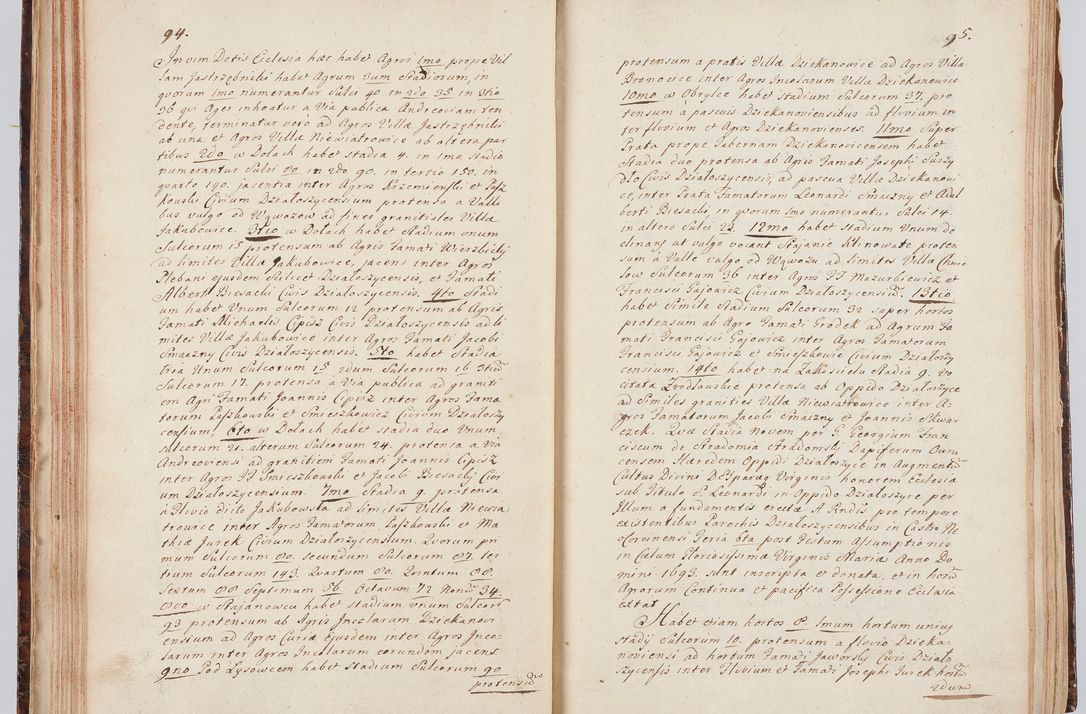 94.
In vim Dotis Ecclesia hæc habet Agros 1mo prope Vil
lam Jastrzębniki habet Agrum 3um Stadiorum, in
quorum 1mo numerantur Sulci 40 in 2do 35 in 3tio
36 qui Ager inhoatur a Via publica Andreoviam ten
dente, terminatur verò ad Agros Villæ Jastrzębniki
ab una et Agros Villæ Niewiatrowice ab altera par
tibus 2do w Dołach habet stadia 4. in 1mo Stadio
numerantur Sulci 80 in 2do 90. in tertio 150. in
quarto 190. jacentia inter Agros Krzemienski et Paſz
kowski Civium Działoszycensium protensa a Valli
bus vulgo od Wąwozow ad fines granitiales Villæ
Jakubowice. 3tio w Dołach habet Stadium unum
Sulcorum 15 protensum ab Agris Famati Wierzbicky
ad limites Villæ Jakubowice, jacens inter Agros
Plebani ejusdem Scilicet Działoszycensis, et Famati
Alberti Biesacki Civis Działoszycensis. 4to Stadi
um habet Unum Sulcorum 12 protensum ab Agris
Famati Michaelis Cipisz Civis Działoszycensis ad li
mites Villæ Jakubowice inter Agros Famati Jacobi
Smaczny Civis Działoszycensis. 5to habet Stadia
tria Unum Sulcorum 15. 2dum Sulcorum 16 3tiũ
Sulcorum 17. protensa à Via publica ad graniti
em Agri Famati Joannis Cipisz inter Agros Fama
torum Paſzkowski et Smieszkowicz Civium Działoszy
censium. 6to w Dołach habet stadia duo Unum
sulcorum 21. alterum Sulcorum 24. protensa a Via
Andreoviensi ad granitiem Famati Joannis Cipisz
inter Agros FF Smieszkowski et Jacobi Biesacky Civi
um Działoszycensium. 7mo Stadia 9. protensa
à Fluvio dicto Jakubowska ad limites Villæ Niewia
trowice inter Agros Famatorum, Paſzkowski et Ma
thiæ Jurek Civium Działoszycensium. Quorum pri
mum Sulcorum 80. secundum Sulcorum 87. ter
tium Sulcorum 143. Quartum 80. Quintum 88.
Sextum 88 Septimum 56 Octavum 72 Nonũ 34.
8vo w Stajanowcu habet Stadium unum Sulcorũ
93 protensum ab Agris Incolarum Dziekanovi
ensium ad Agros Curiæ Ejusdem inter Agros Inco
larum inter Agros Incolarum eorundem jacens
9no Pod Łysowcem habet Stadium Sulcorum 90
protensũ
95.
protensum a pratis Villæ Dziekanowice ad Agros Villæ
Bronocice inter Agros Incolarum Villæ Dziekanowice
10mo w Obrylce habet stadium Sulcorum 37. pro
tensum à pascuis Dziekanoviensibus ad fluvium in
ter fluvium et Agros Dziekanovienses. 11mo Super
Prata prope Tabernam Dziekanovicensem habet
Stadia duo protensa ab Agris Famati Josephi Suszy
dło Civis Działoszycensis, ad pascua Villæ Dziekanovi
ce, inter Prata Famatorum Leonardi Smaczny et Adal
berti Biesacki, in quorum 1mo numerantur Sulci 14.
in altero Sulci 22. 12mo habet Stadium Unum de
clinans ut vulgo vocant Stajanie Klinowate proten
sum a Valle vulgo od Wąwozu ad limites Villæ Chmie
low Sulcorum 36 inter Agros FF Mazurkiewicz et
Francisci Gajowicz Civium Działoszycensiũ. 13tio
habet Simile Stadium Sulcorum 32 super hortos
protensum ab Agro Famati Grodek ad Agrum Fa
mati Francisci Gajowicz inter Agros Famatorum
Francisci Gajowicz et Smieszkowic Civium Działoszy
censium. 14to habet na Zakościelu Stadia 9. vo
citata Zrodłowskie protensa ab Oppido Działoszyce
ad Similes granities Villæ Niewiatrowice inter A
gros Famatorum Jacobi Smaczny et Joannis Skwar
czek. Quæ Stadia Novem per G. Georgium Fran
ciscum de Stradomia Stradomski Dapiferum Owru
censem Hæredem Oppidi Działoszyce in Augmentũ
Cultus Divini DEIparæq Virginis honorem Ecclesiæ
sub Titulo S. Leonardi in Oppido Działoszyce per
Illum a fundamentis erectæ A Rndis pro tempore
existentibus Parochis Działoszycensibus in Castro Ne
ocorcinensi Feria 6ta post Festum Assumptionis
in Cælum Gloriosissimæ Virginis Mariæ Anno Do
mini 1693. sunt inscripta et donata, et in horũ
Agrorum Continua et pacifica Possessione Ecclesia
extat
Habet etiam hortos 8. 1mum hortum unius
stadÿ Sulcorum 10. protensum a fluvio Dzieka
noviensi ad hortum Famati Jaworsky Civis Działo
szycensis inter Fluvium et Famati Josephi Jurek hortũ
2dum